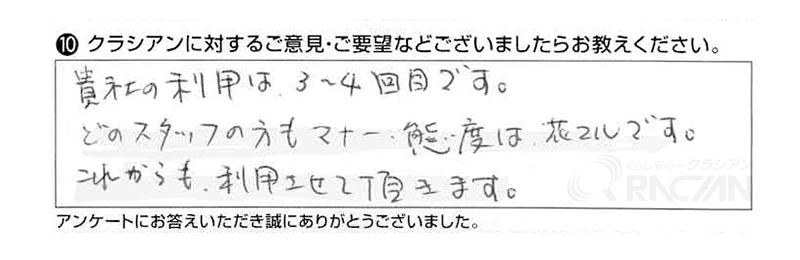 ⑩ クラシアンに対するご意見・ご要望などございましたらお教えください。
貴社の利用は、3〜4回目です。
どのスタッフの方もマナー・態度は、花マルです。
これからも、利用させて頂きます。
くらし安心クラシアン
QRACIAN
アンケートにお答えいただき誠にありがとうございました。